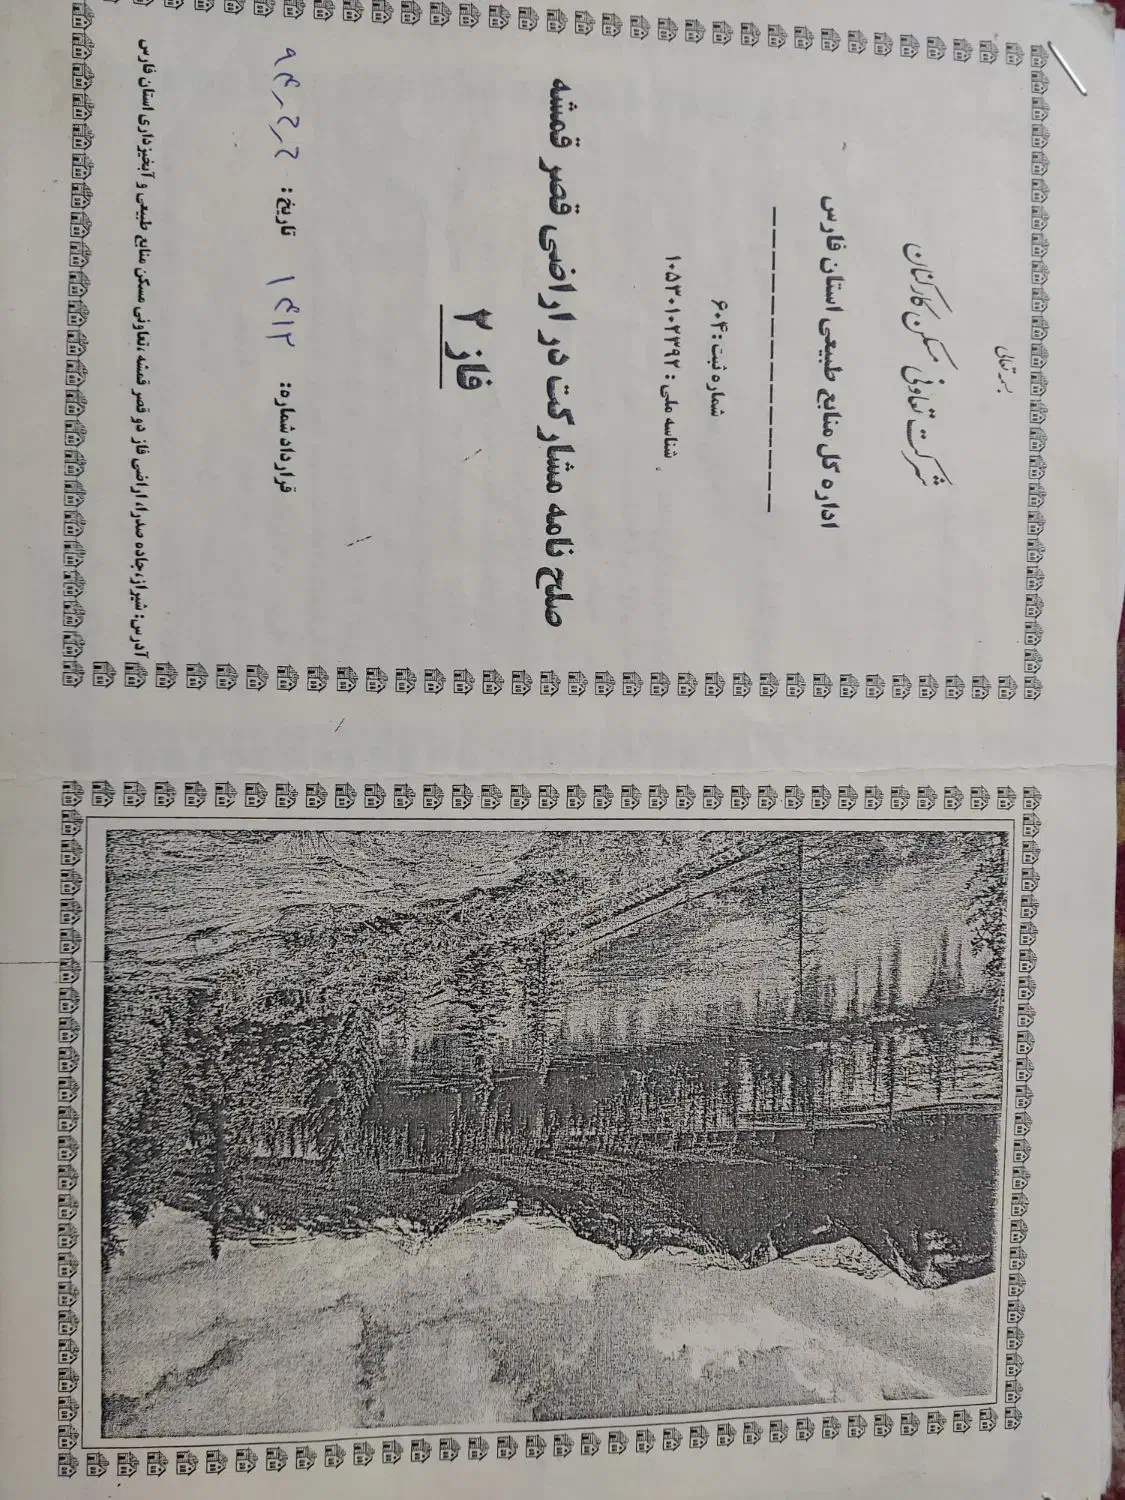 بسمه تعالی
شرکت تعاونی مسکن کارکنان
اداره کل منابع طبیعی استان فارس
شماره ثبت : ۶۰۴
شناسه ملی : ۱۰۵۳۰۱۰۲۳۹۲
صلح نامه مشارکت در اراضی قصر قمشه
فاز ۲
قرارداد شماره: ۱۴۱۲ تاریخ:
آدرس: شیراز،جاده صدرا، اراضی فاز دو قصر قمشه ،تعاونی مسکن منابع طبیعی و آبخیزداری استان فارس